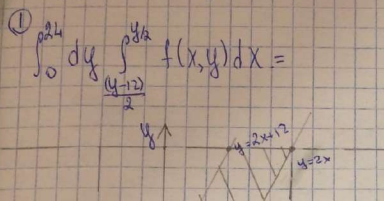 ①
∫₀²⁴ dy ∫_{(y-12)/2}^{y/2} f(x,y)dx =
y
y=2x+12
y=2x